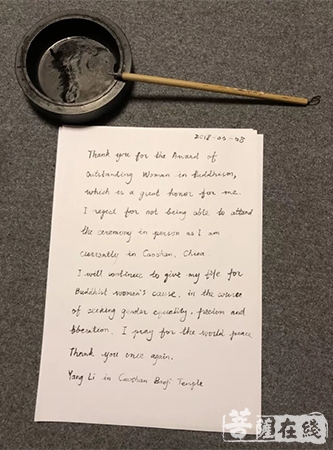 2018-03-08
Thank you for the Award of
Outstanding Woman in Buddhism,
which is a great honor for me.
I regret for not being able to attend
the ceremony in person as I am
currently in Caoshan, China
I will continue to give my life for
Buddhist women's cause, in the course
of seeking gender equality, freedom and
liberation. I pray for the world peace
Thank you once again,
Yang Li in Caoshan Baoji Temple
菩薩在線